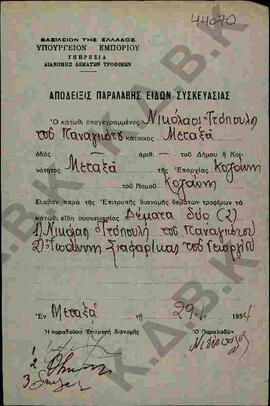 44070
ΒΑΣΙΛΕΙΟΝ ΤΗΣ ΕΛΛΑΔΟΣ
ΥΠΟΥΡΓΕΙΟΝ ΕΜΠΟΡΙΟΥ
ΥΠΗΡΕΣΙΑ
ΔΙΑΝΟΜΗΣ ΔΕΜΑΤΩΝ ΤΡΟΦΙΜΩΝ
ΑΠΟΔΕΙΞΙΣ ΠΑΡΑΛΑΒΗΣ ΕΙΔΩΝ ΣΥΣΚΕΥΑΣΙΑΣ
Ὁ κάτωθι ὑπογεγραμμένος Νικόλαος
τοῦ Παναγιώτου κάτοικος Μεταξᾶ
ὁδὸς ἀριθ. — τοῦ Δήμου ἢ Κοι-
νότητος Μεταξᾶ τῆς Ἐπαρχίας Κοζάνης
τοῦ Νομοῦ Κοζάνης
Ἔλαβον παρὰ τῆς Ἐπιτροπῆς διανομῆς δεμάτων τροφίμων τὰ
κάτωθι εἴδη συσκευασίας Δέματα δύο (2)
τοῦ Παναγιώτου
2) Ἰωάννης τοῦ Γεωργίου
Ἐν Μεταξᾶ τῇ 29 195
Ἡ παραδοῦσα Ἐπιτροπὴ διανομῆς Ὁ Παραλαβὼν
1
2
3